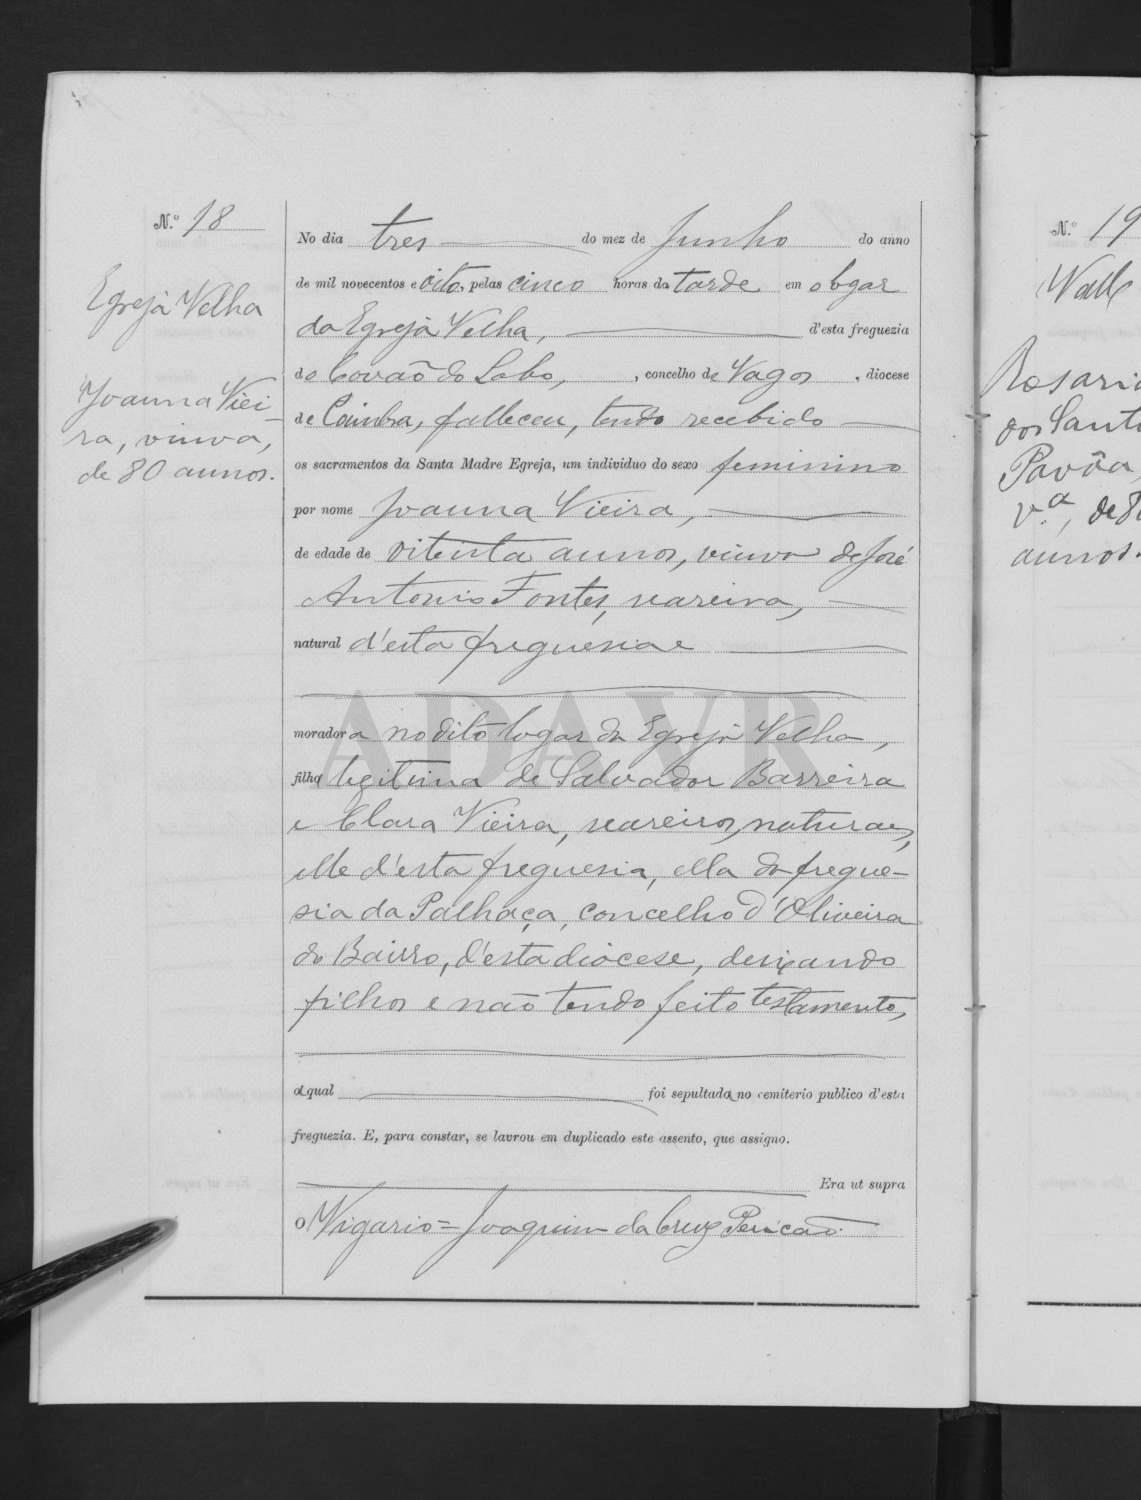 N.º 18
Egreja Velha
Joanna Viei-
ra, viuva,
de 80 annos.
No dia tres do mez de Junho do anno
de mil novecentos e oito, pelas cinco horas da tarde em o logar
da Egreja Velha, d'esta freguezia
de Covão do Lobo, , concelho de Vagos , diocese
de Coimbra, falleceu, tendo recebido
os sacramentos da Santa Madre Egreja, um individuo do sexo feminino
por nome Joanna Vieira,
de edade de oitenta annos, viuva de José
Antonio Fontes, seareira,
natural d'esta freguesia e
ADAVR
moradora no dito logar da Egreja Velha,
filha legitima de Salvador Barreira
e Clara Vieira, seareiros, naturaes,
elle d'esta freguesia, ella da fregue-
sia da Palhaça, concelho d'Oliveira
do Bairro, d'esta diocese, deixando
filhos e não tendo feito testamento,
a qual foi sepultada no cemiterio publico d'esta
freguezia. E, para constar, se lavrou em duplicado este assento, que assigno.
Era ut supra
O Vigario = Joaquim da Cruz Pericão.
N.º 19
Rosaria
dos Santos
Pavôa,
v.ª, de 8
annos.